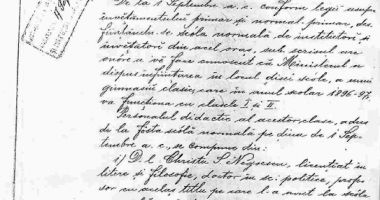 De la 1 Septembre a. c. conform legii asupra
învĕtămentului primar și normal primar, des-
ființându-se scóla normală de institutori și
învĕtători din acel oraș, sub scrisul are
onóre a vĕ face cunoscut că Ministerul a
dispus înființarea în locul disei scóle, a unui
gimnasiu clasic, care în anul școlar 1896-97,
va funcționa cu clasele I și II.
Personalul didactic al acestor clase, adus
de la fósta scólă normală pe diua de 1 Sep-
tembre a. c., se compune din:
1) D-l Christu S. Negoescu, licențiat în
litere și filosofie, doctor în sci. politice, profe-
sor cu acelaș titlu pe care l-a avut la scóla